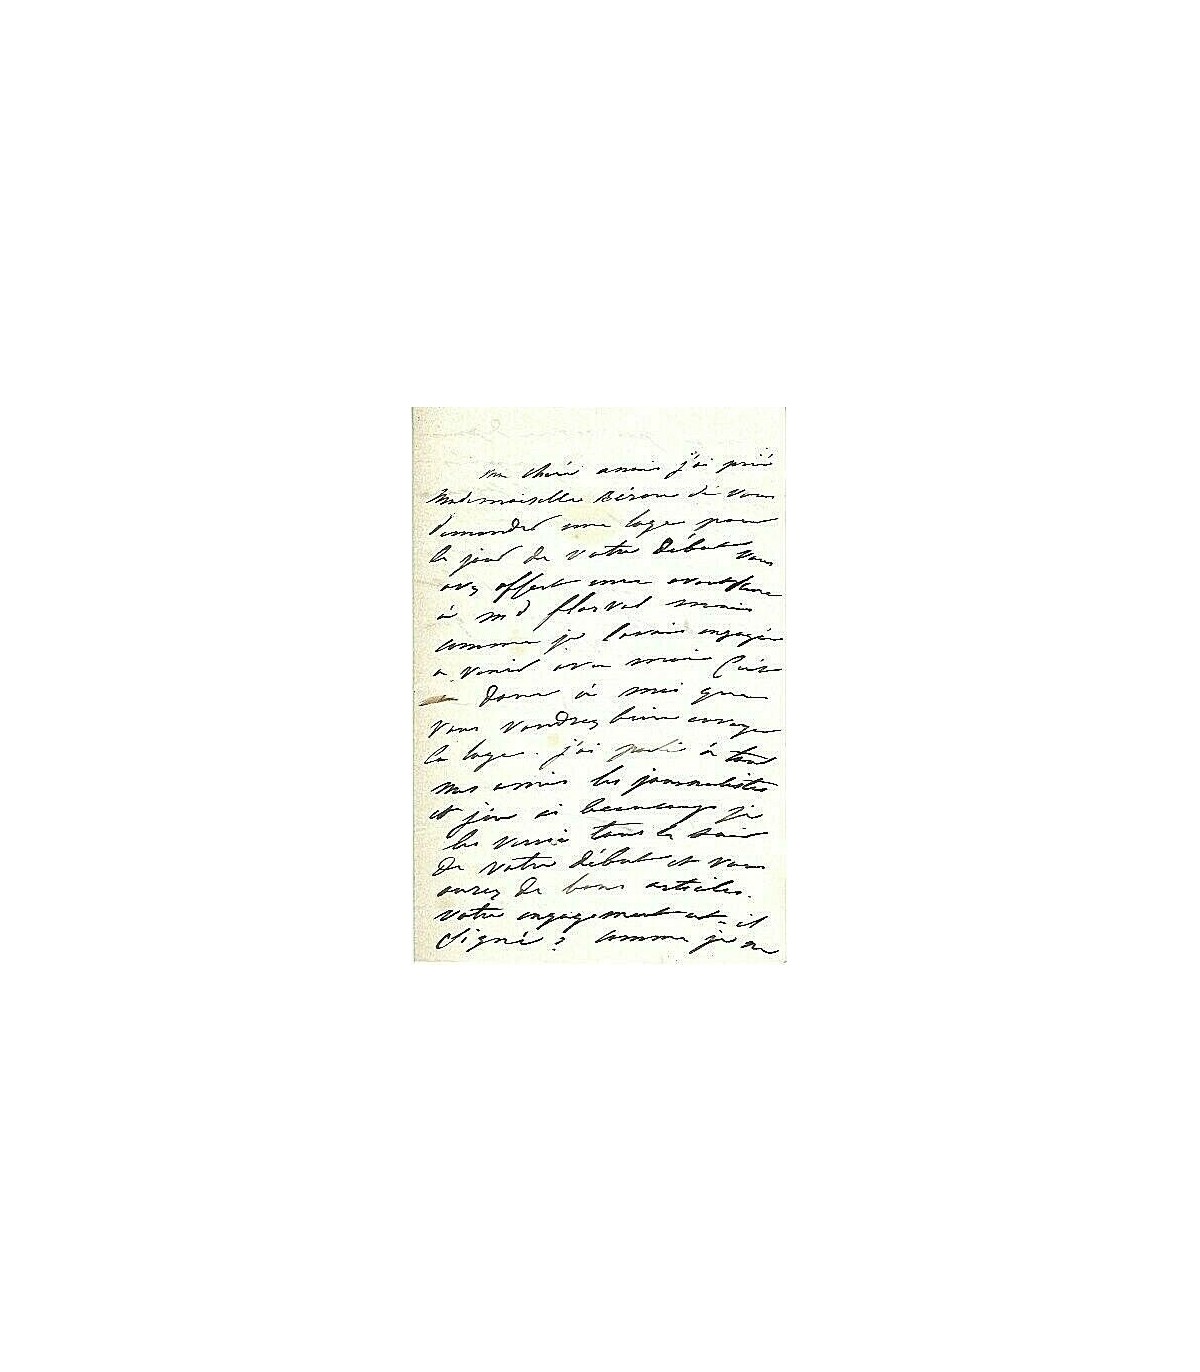 ma chère amie j'ai prié
Mademoiselle de vous
demander une loge pour
le jour de votre début vous
avez offert une avant scene
à md florval mais
comme je l'avais engagée
a venir avec moi c'est
donc à moi que
vous voudrez bien envoyer
la loge. j'ai parlé à tous
mes amis les journalistes
et j'en ai beaucoup je
les verrai tous le soir
de votre début et vous
aurez de bons articles.
votre engagement est-il
signé? comme je ne